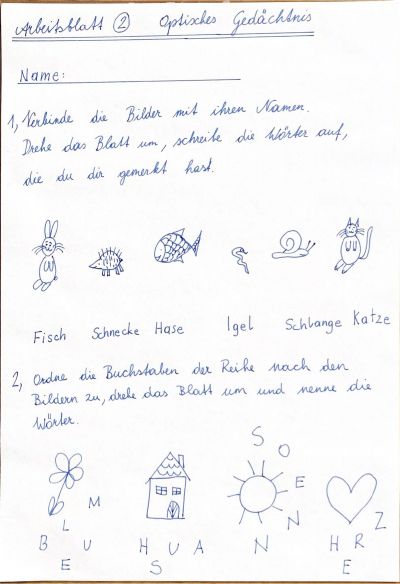 Arbeitsblatt ② Optisches Gedächtnis
Name:
1, Verbinde die Bilder mit ihren Namen.
Drehe das Blatt um, schreibe die Wörter auf,
die du dir gemerkt hast.
Fisch Schnecke Hase Igel Schlange Katze
2, Ordne die Buchstaben der Reihe nach den
Bildern zu, drehe das Blatt um und nenne die
Wörter.
M L B U E
H U A S
S O E N N
Z H R E